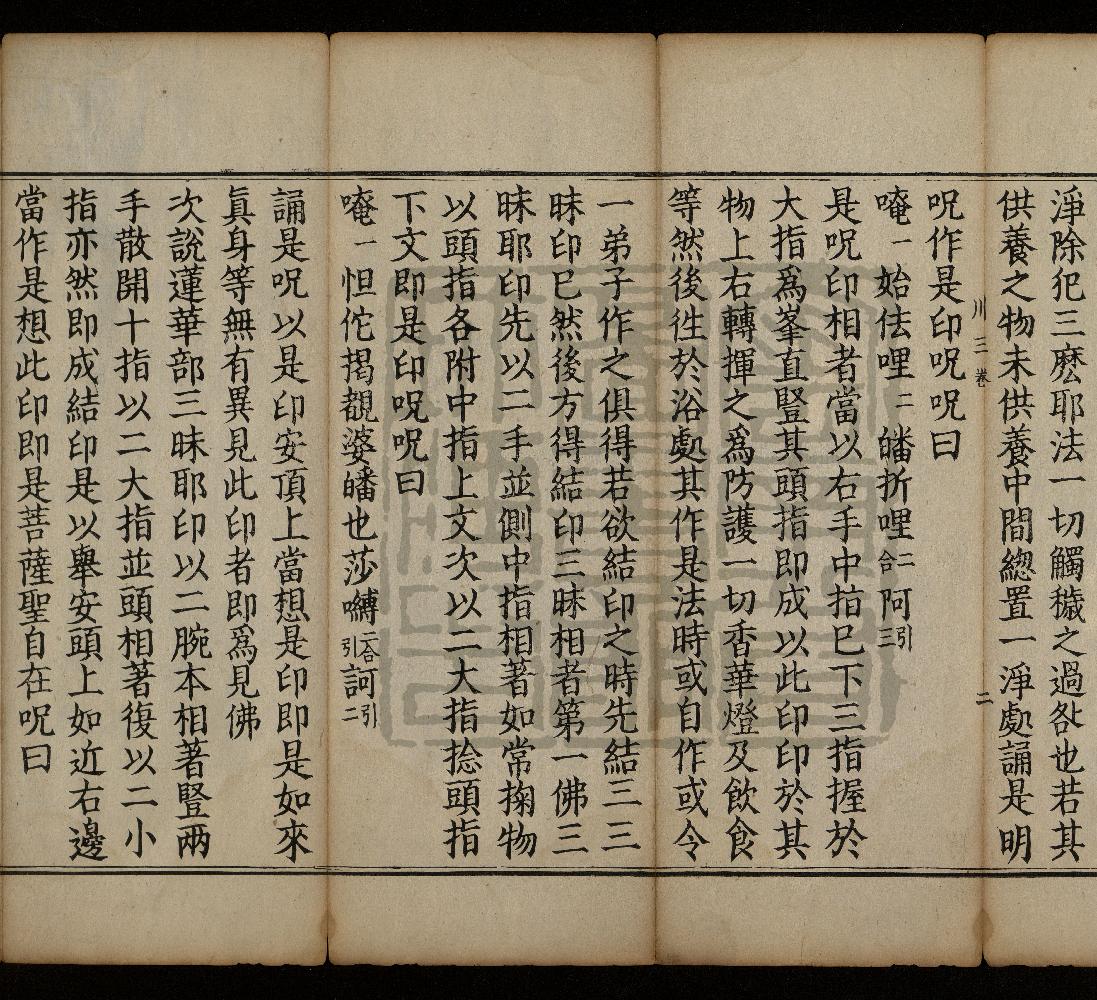 淨除犯三麽耶法一切觸穢之過咎也若其
供養之物未供養中間緫置一淨處誦是明
川三 卷 二
呪作是印呪呪曰
唵一始佉哩二皤折哩二合阿引三
是呪印相者當以右手中指已下三指握於
大指爲峯直豎其頭指即成以此印印於其
物上右轉揮之爲防護一切香華燈及飲食
等然後徃於浴處其作是法時或自作或令
一弟子作之俱得若欲結印之時先結三三
昧印巳然後方得結印三昧相者第一佛三
昧耶印先以二手並側中指相著如常掬物
以頭指各附中指上文次以二大指捻頭指
下文即是印呪呪曰
唵一怛佗揭覩婆皤也莎嚩二合引訶引二
誦是呪以是印安頂上當想是印即是如來
眞身等無有異見此印者即爲見佛
次說蓮華部三昧耶印以二腕本相著豎兩
手散開十指以二大指並頭相著復以二小
指亦然即成結印是以舉安頭上如近右邊
當作是想此印即是菩薩聖自在呪曰